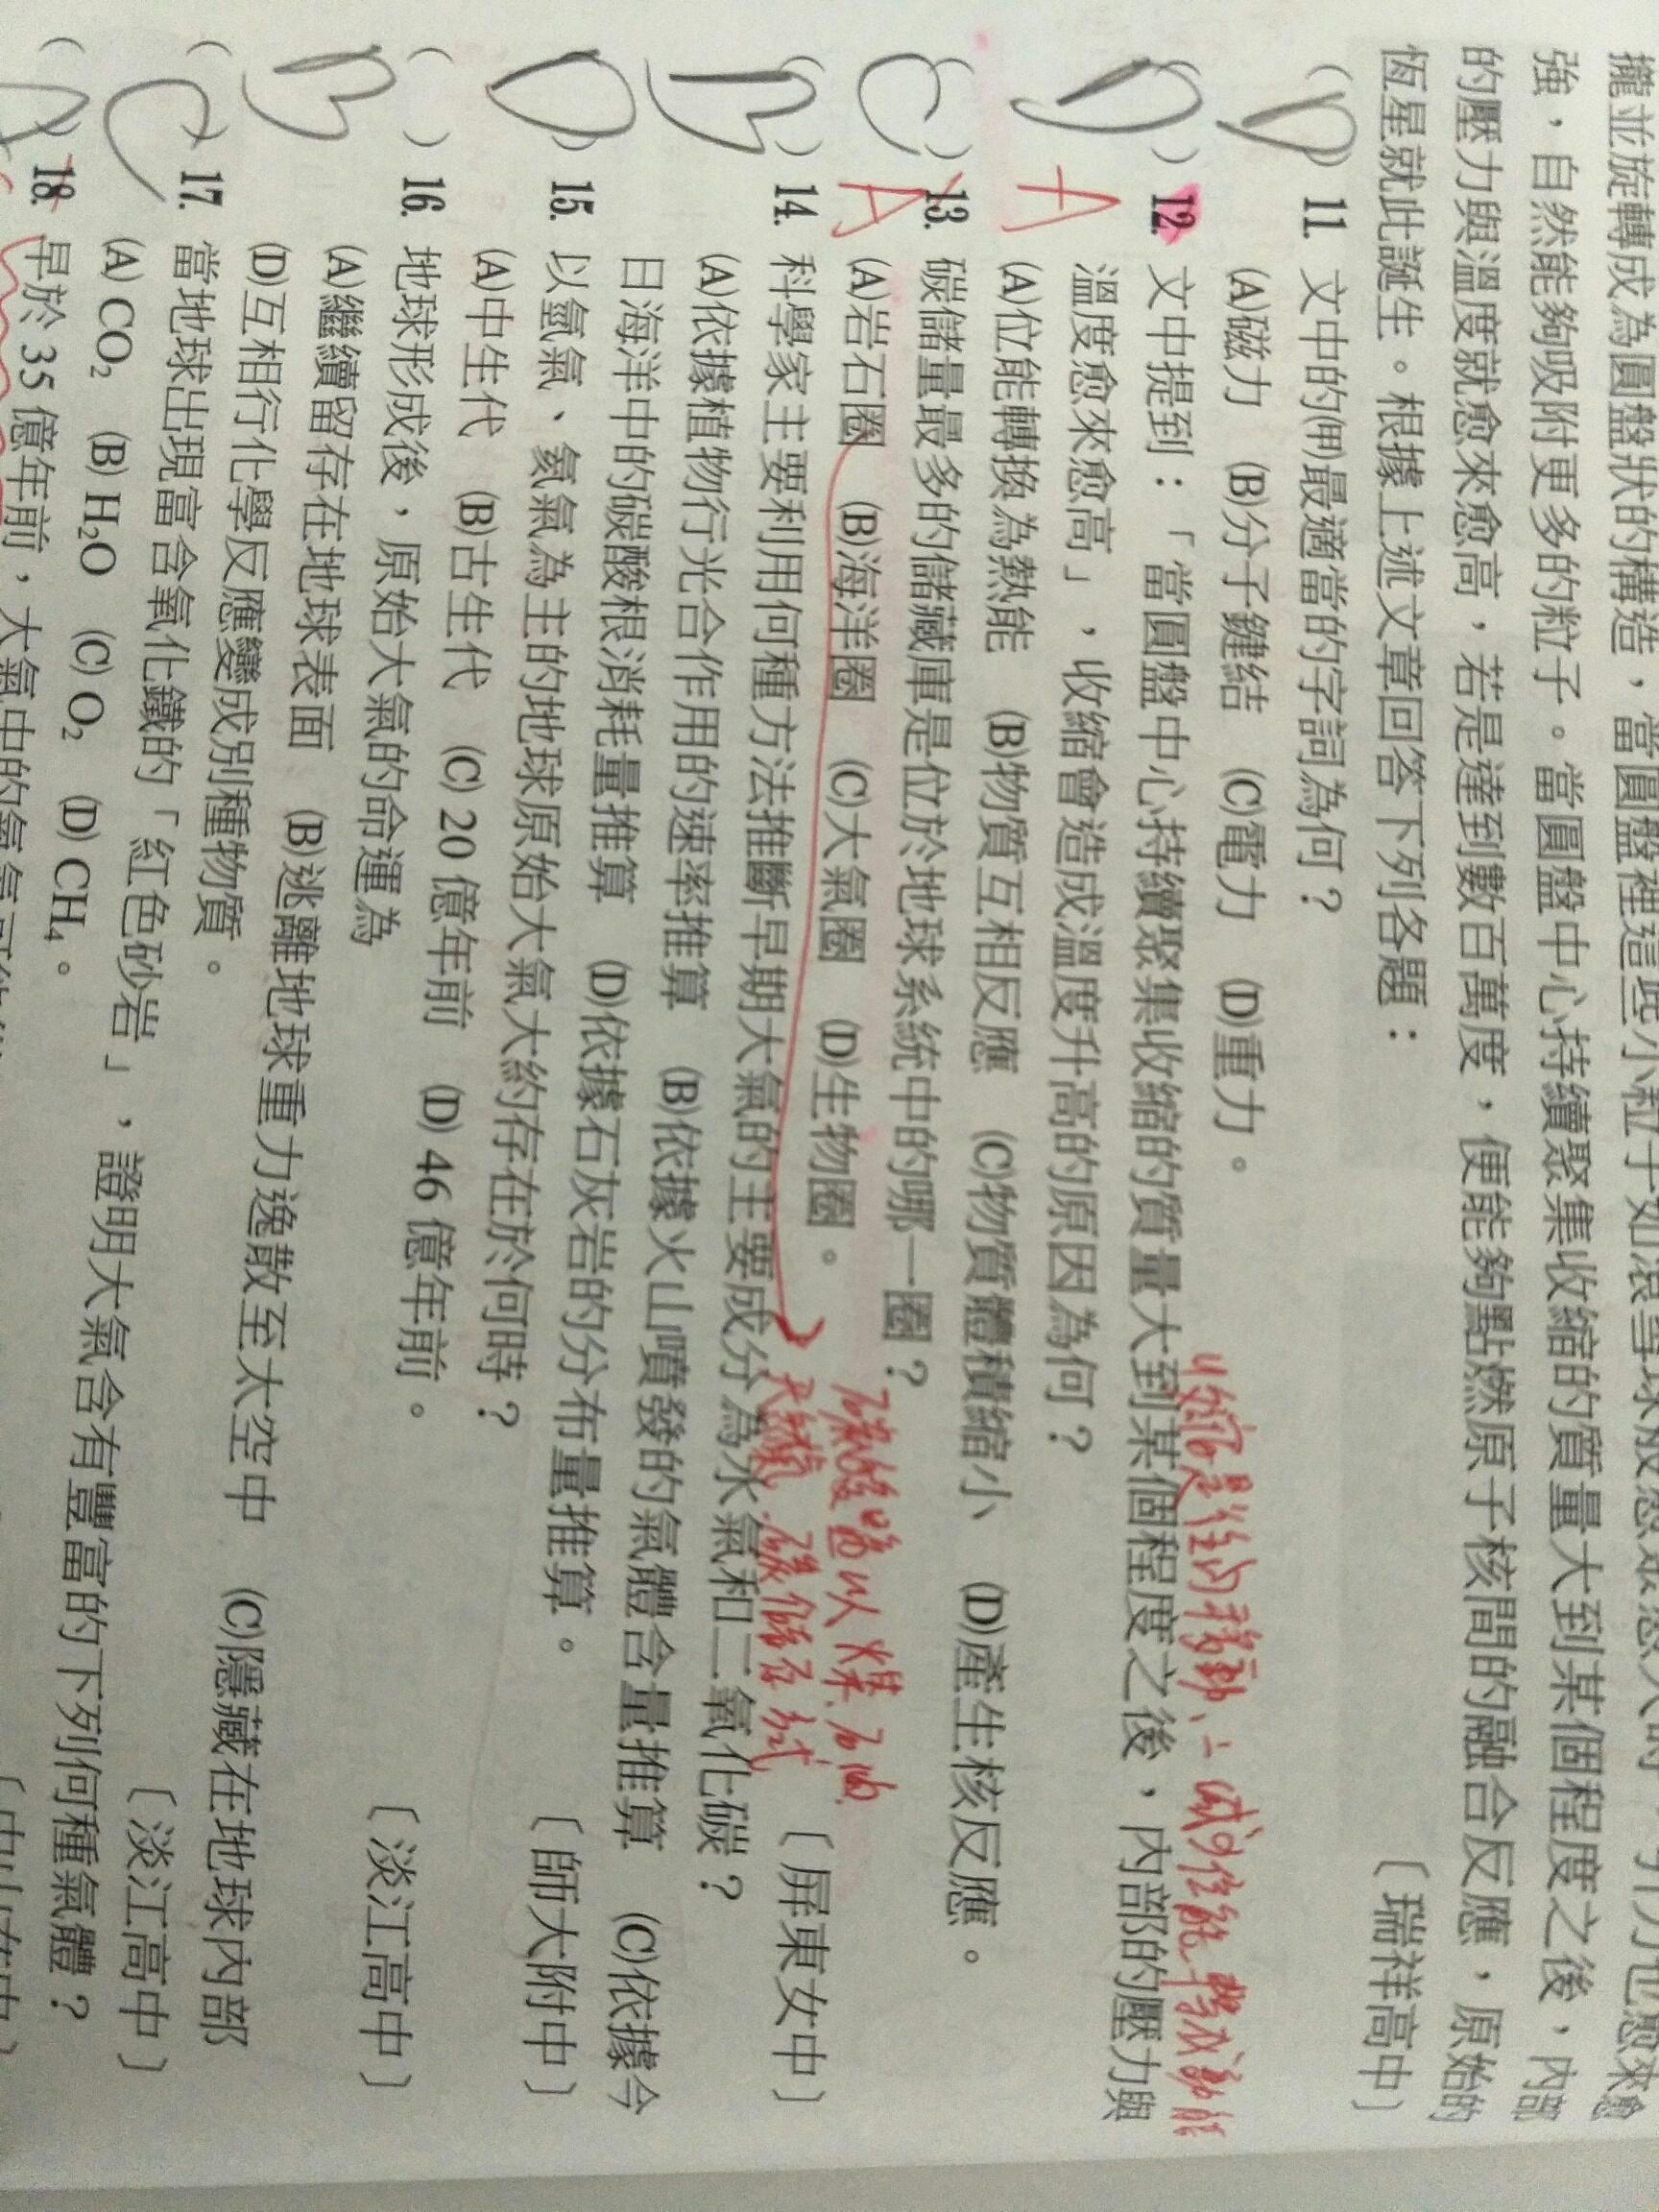 攏並旋轉成為圓盤狀的構造，當圓盤裡這些小粒子如滾雪球般愈聚愈大時，引力也愈來愈
強，自然能夠吸附更多的粒子。當圓盤中心持續聚集收縮的質量大到某個程度之後，內部
的壓力與溫度就愈來愈高，若是達到數百萬度，便能夠點燃原子核間的融合反應，原始的
恆星就此誕生。根據上述文章回答下列各題： 〔瑞祥高中〕
(D) 11. 文中的(甲)最適當的字詞為何？
(A)磁力 (B)分子鍵結 (C)電力 (D)重力。
收縮是往內移動、 減少位能 變成動能
(D) 12. 文中提到：「當圓盤中心持續聚集收縮的質量大到某個程度之後，內部的壓力與
A 溫度愈來愈高」，收縮會造成溫度升高的原因為何？
(A)位能轉換為熱能 (B)物質互相反應 (C)物質體積縮小 (D)產生核反應。
(C) 13. 碳儲量最多的儲藏庫是位於地球系統中的哪一圈？
碳酸鹽以煤.石油
A (A)岩石圈 (B)海洋圈 (C)大氣圈 (D)生物圈。 〔屏東女中〕
天然氣.碳儲存形式
(B) 14. 科學家主要利用何種方法推斷早期大氣的主要成分為水氣和二氧化碳？
(A)依據植物行光合作用的速率推算 (B)依據火山噴發的氣體含量推算 (C)依據今
日海洋中的碳酸根消耗量推算 (D)依據石灰岩的分布量推算。 〔師大附中〕
(D) 15. 以氫氣、氦氣為主的地球原始大氣大約存在於何時？
(A)中生代 (B)古生代 (C) 20 億年前 (D) 46 億年前。 〔淡江高中〕
(B) 16. 地球形成後，原始大氣的命運為
(A)繼續留存在地球表面 (B)逃離地球重力逸散至太空中 (C)隱藏在地球內部
(D)互相行化學反應變成別種物質。 〔淡江高中〕
(C) 17. 當地球出現富含氧化鐵的「紅色砂岩」，證明大氣含有豐富的下列何種氣體？
(A) CO₂ (B) H₂O (C) O₂ (D) CH₄。 〔中山女中〕
18. 早於 35 億年前，大氣中的氧氣可能